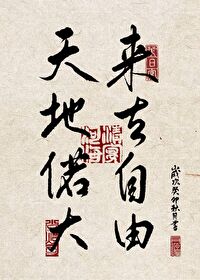 天地偌大
来去自由
歲次癸卯秋月書